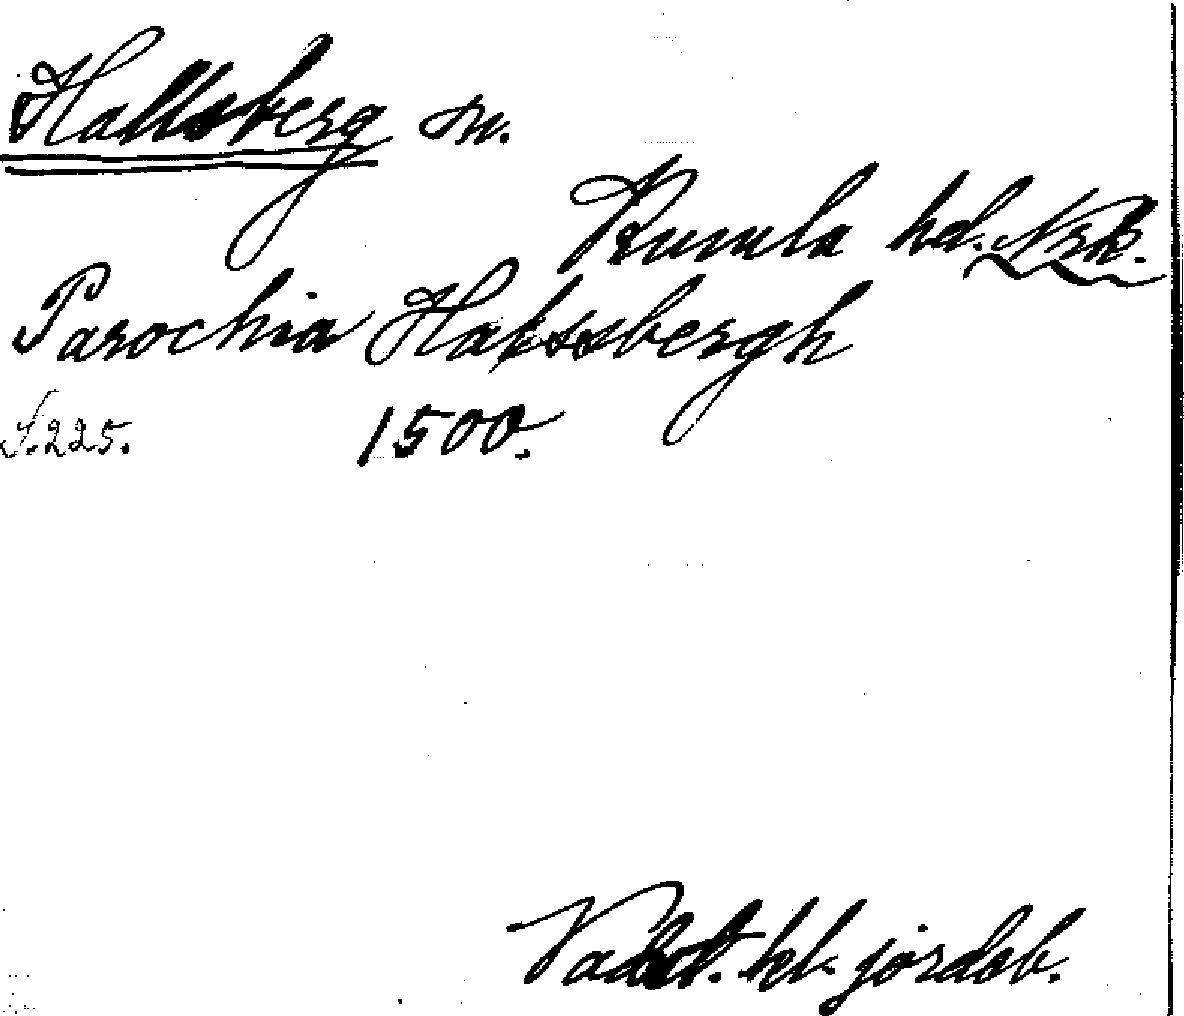 Hallsberg sn.
Kumla hd. Nrk.
Parochia Halssbergh
S.225. 1500.
Vadst. kl. jordeb.